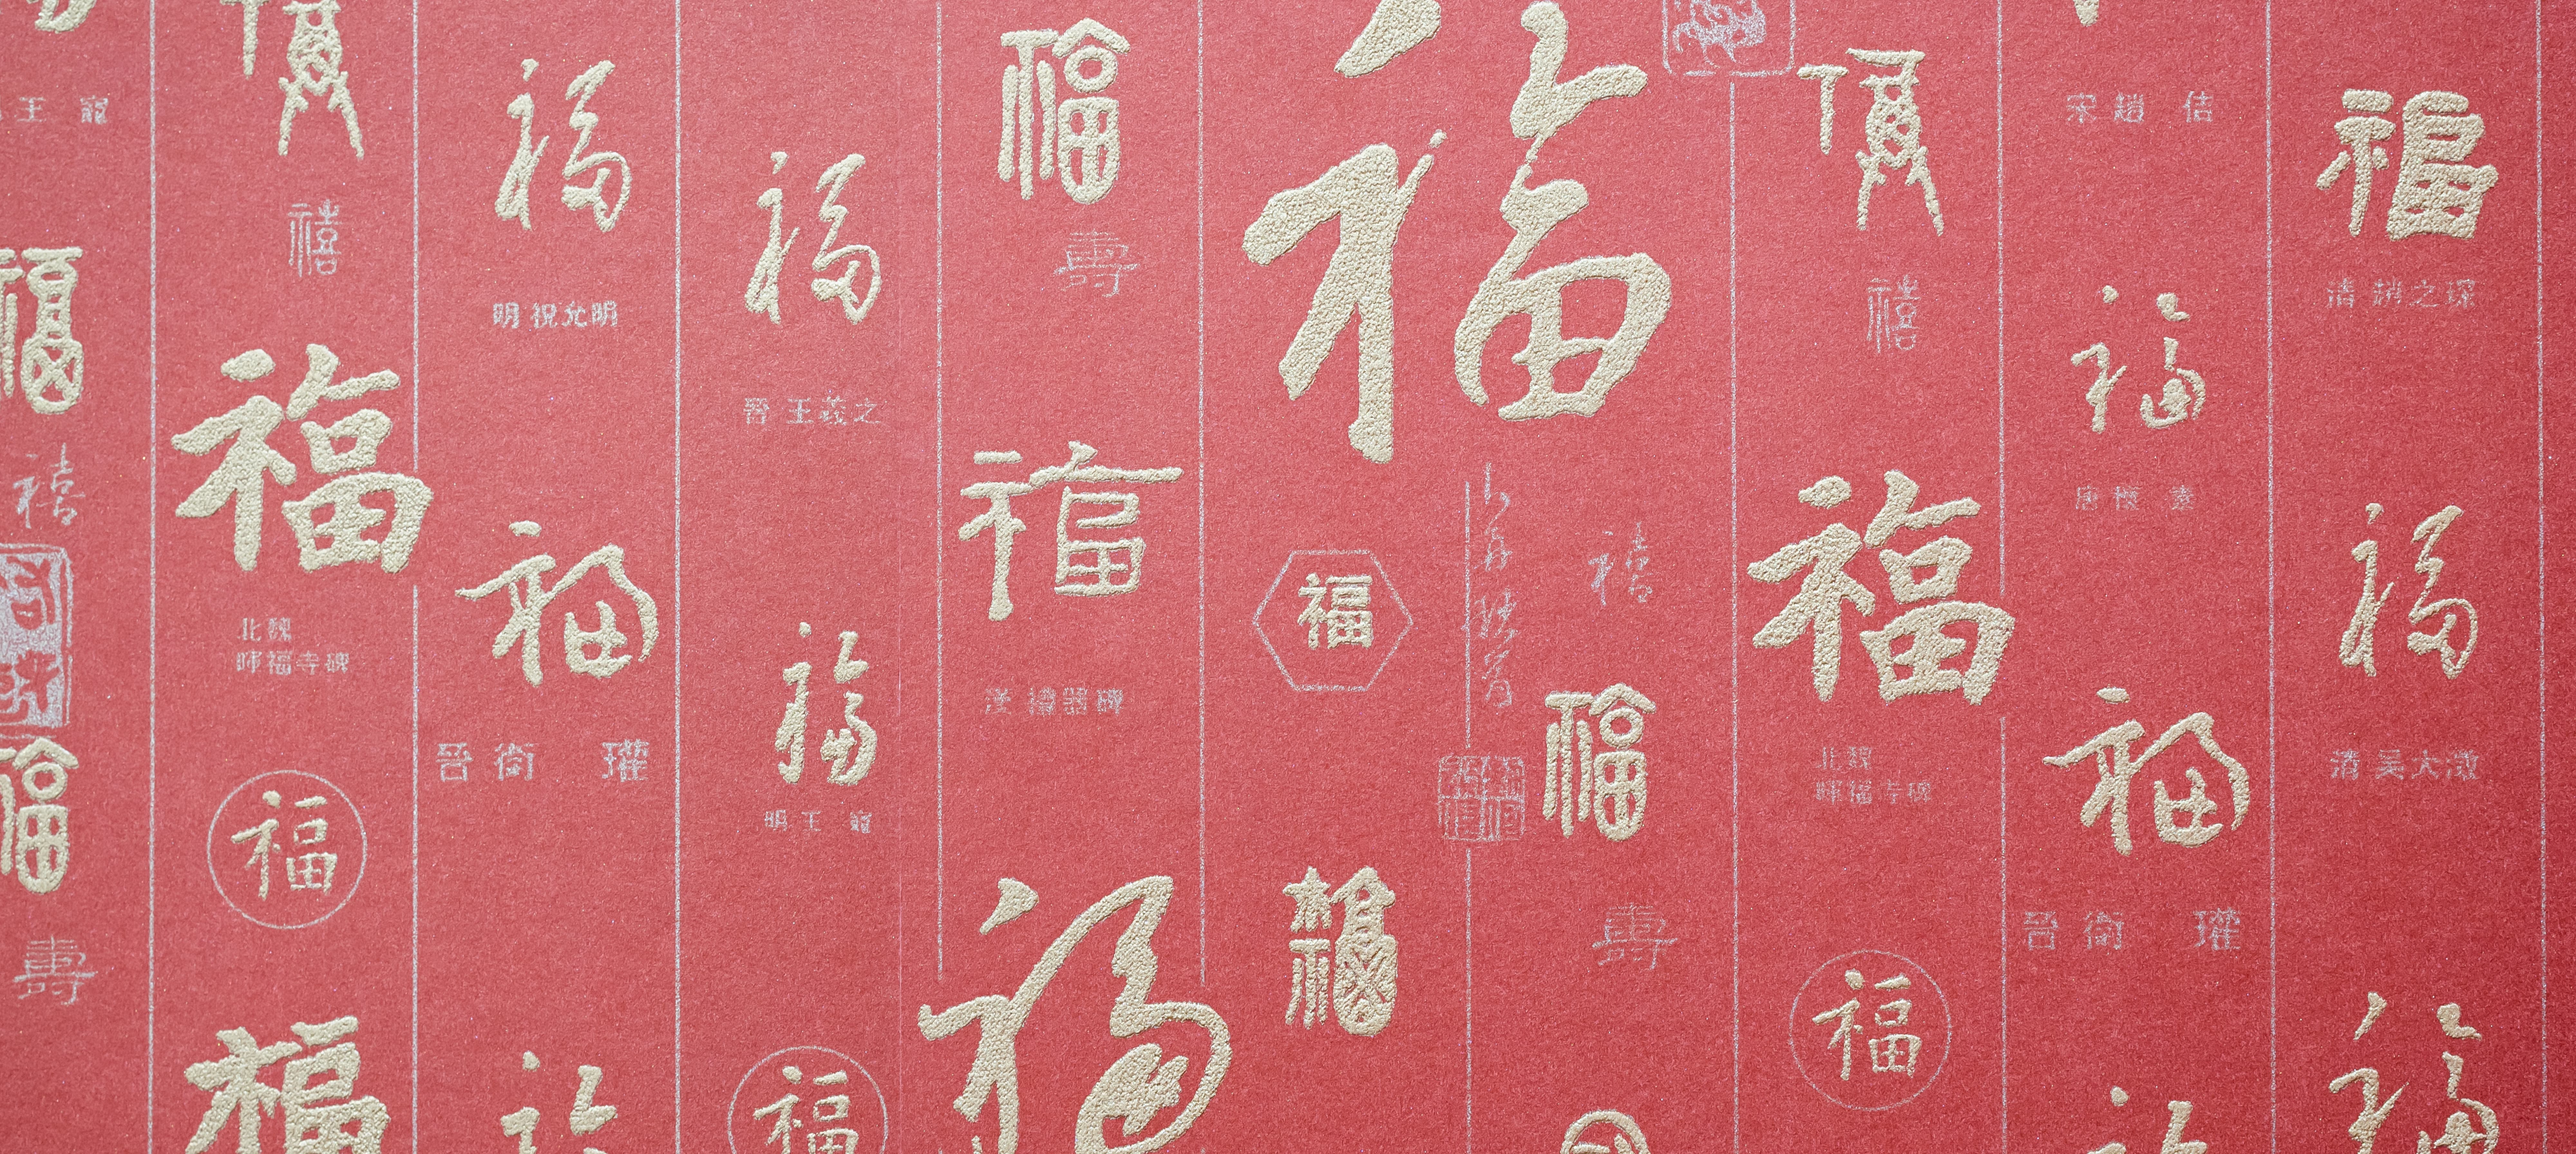 王 寵
福
禧
福
禧
福
壽
福
禧
福
北魏
暉福寺碑
福
福
福
明 祝允明
福
晉 衛 瓘
福
晉 王羲之
福
明 王 寵
福
福
壽
福
福
福
福
福
禧
福
壽
禧
福
北魏
暉福寺碑
福
宋 趙 佶
福
唐 懷 素
福
晉 衛 瓘
福
清 趙之琛
福
清 吳大澂
福